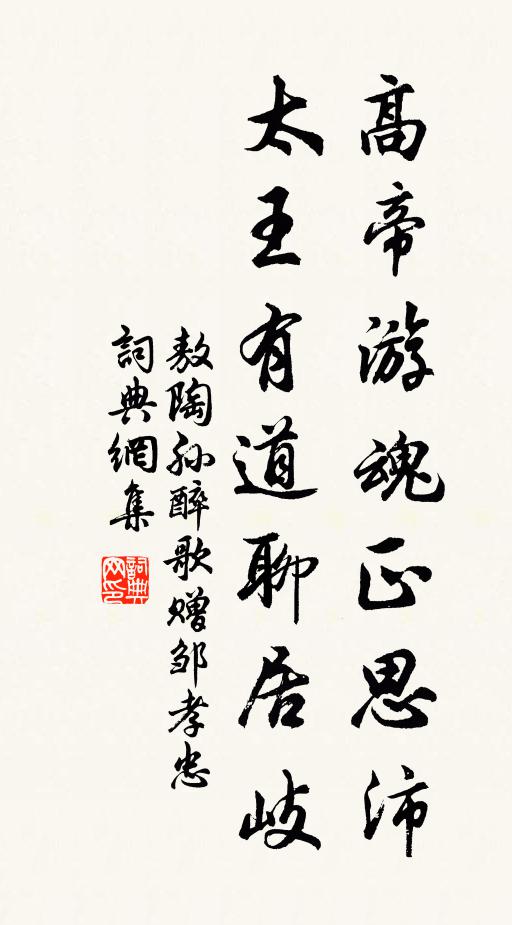 高帝游魂正思沛
太王有道聊居岐
敖陶孙醉歌赠邹孝忠
詞典網集
詞典网印